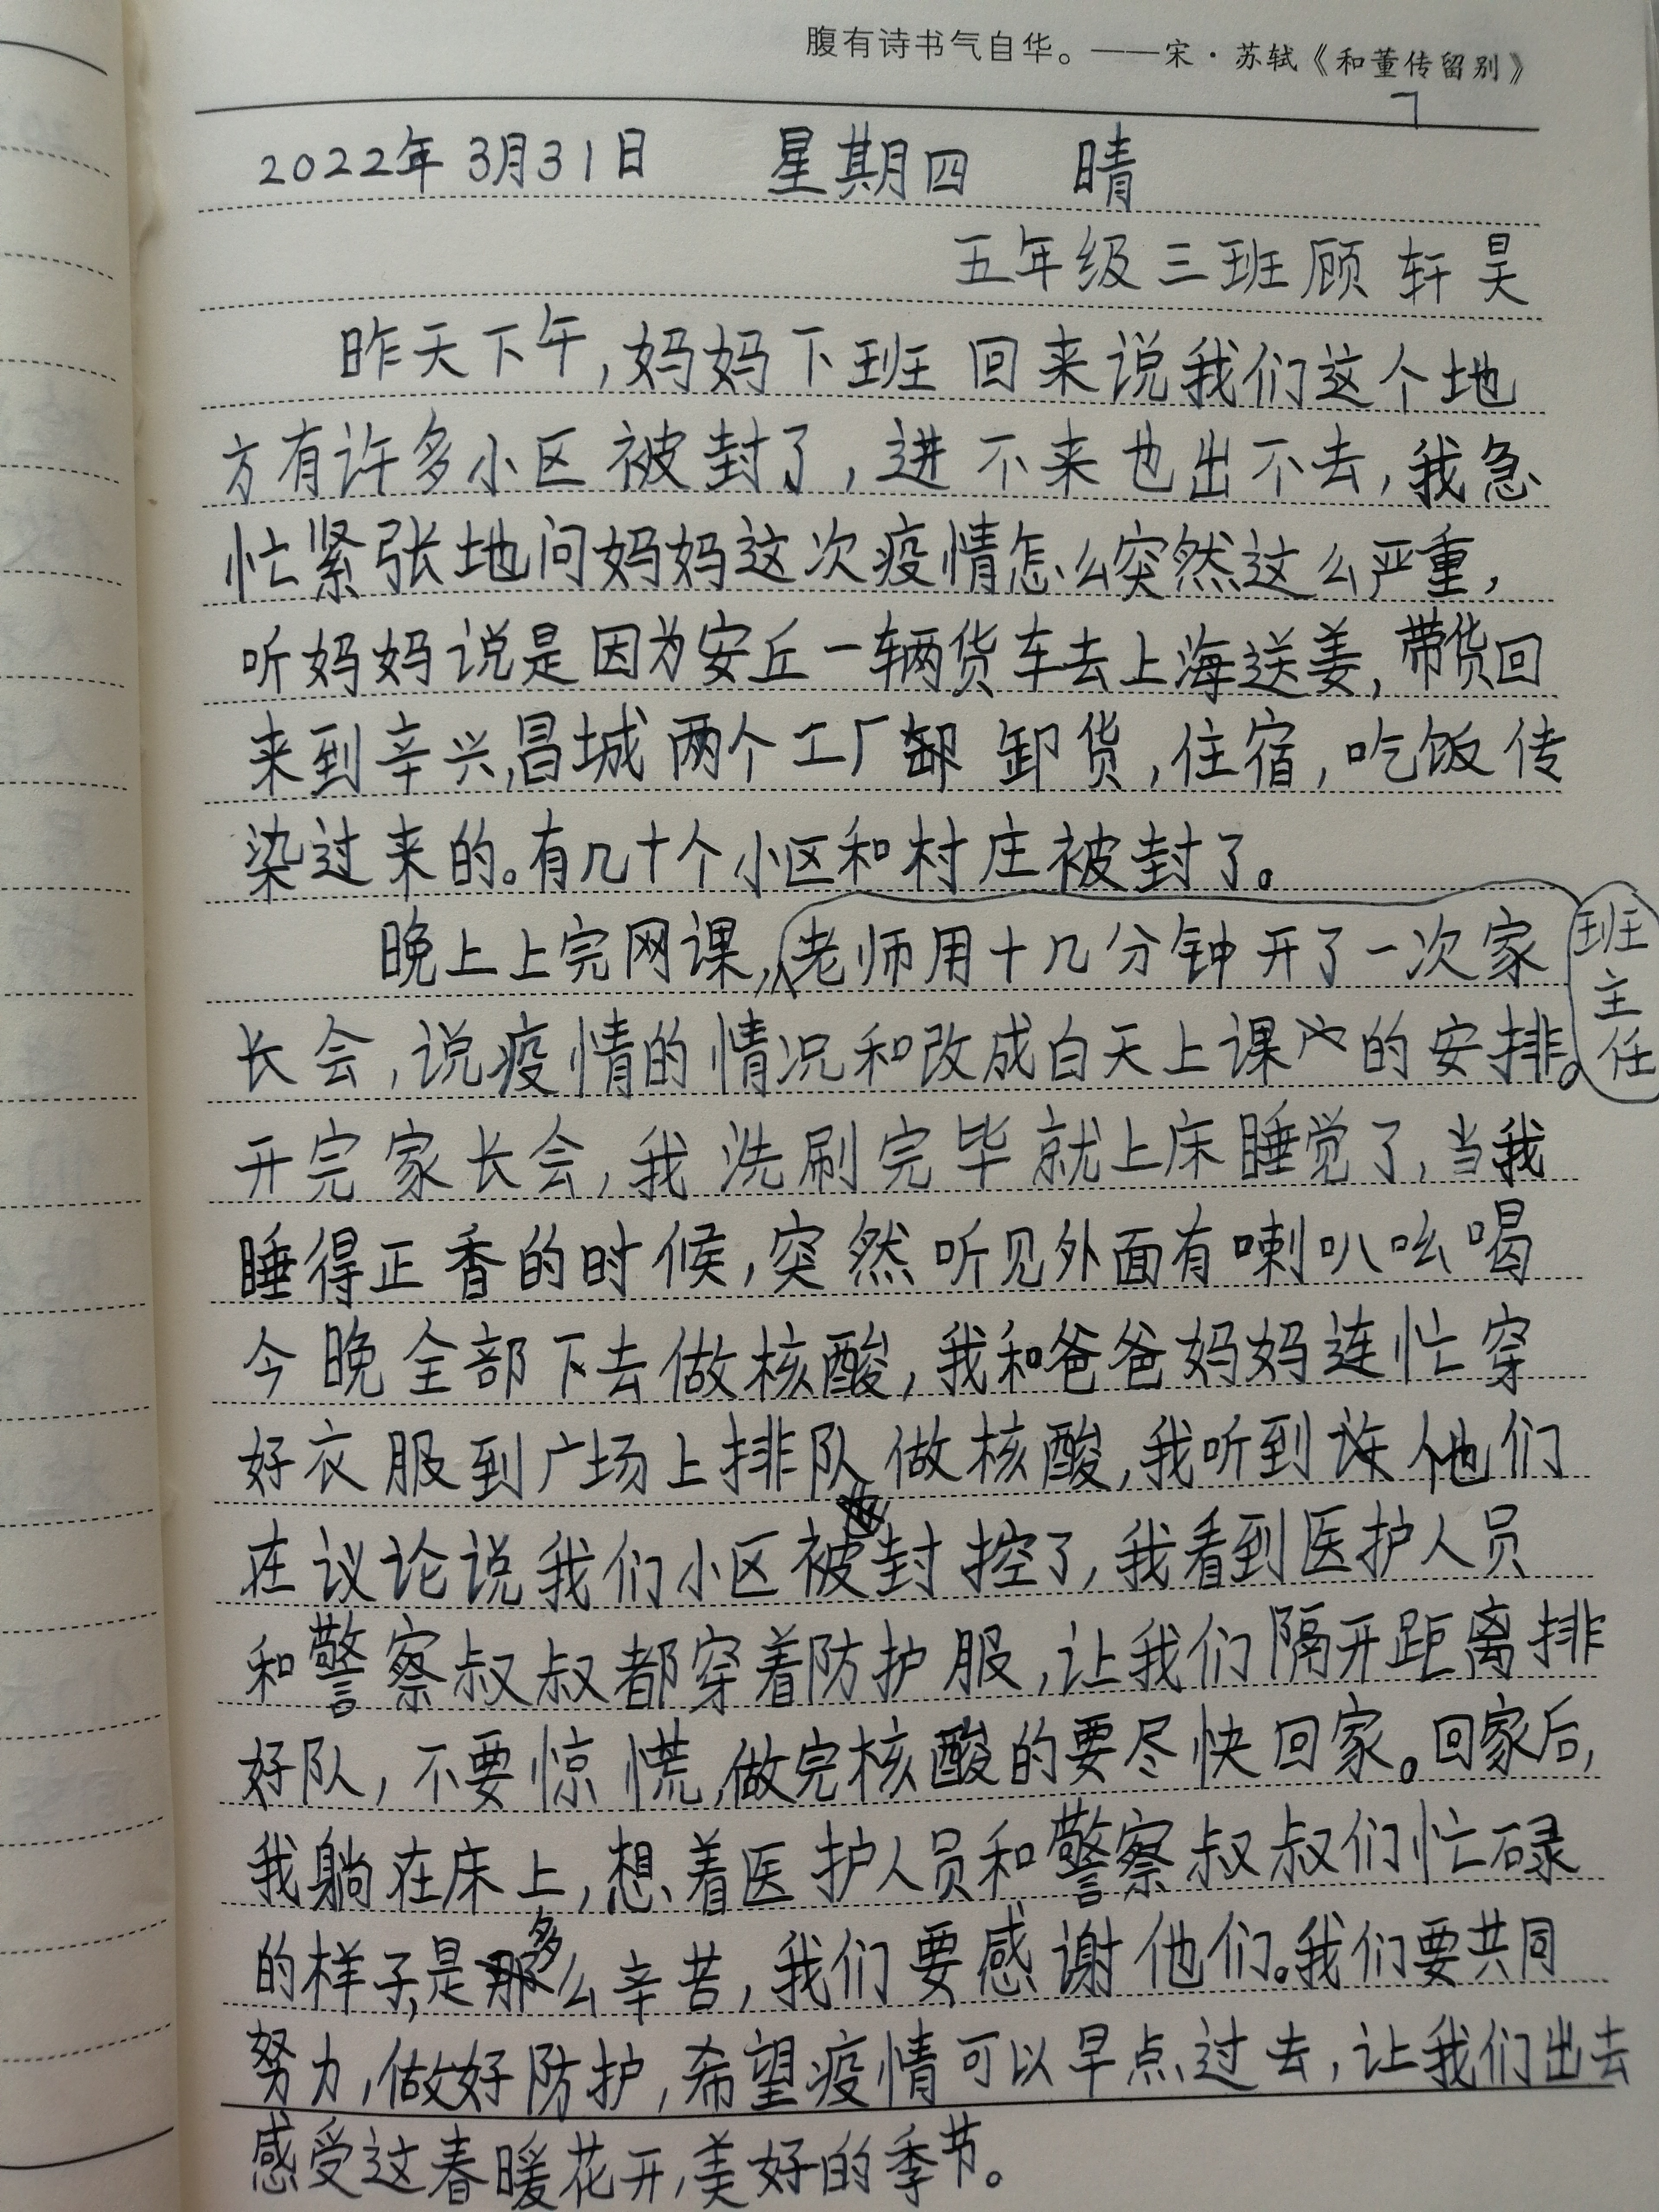 腹有诗书气自华。——宋·苏轼《和董传留别》
2022年3月31日 星期四 晴
五年级三班顾轩昊
昨天下午,妈妈下班回来说我们这个地
方有许多小区被封了,进不来也出不去,我急
忙紧张地问妈妈这次疫情怎么突然这么严重,
听妈妈说是因为安丘一辆货车去上海送姜,带货回
来到辛兴,昌城两个工厂卸卸货,住宿,吃饭传
染过来的。有几十个小区和村庄被封了。
晚上上完网课,班主任老师用十几分钟开了一次家
长会,说疫情的情况和改成白天上课的安排。
开完家长会,我洗刷完毕就上床睡觉了,当我
睡得正香的时候,突然听见外面有喇叭吆喝
今晚全部下去做核酸,我和爸爸妈妈连忙穿
好衣服到广场上排队做核酸,我听到许他们
在议论说我们小区被封控了,我看到医护人员
和警察叔叔都穿着防护服,让我们隔开距离排
好队,不要惊慌,做完核酸的要尽快回家。回家后,
我躺在床上,想着医护人员和警察叔叔们忙碌
的样子,是多么辛苦,我们要感谢他们。我们要共同
努力,做好防护,希望疫情可以早点过去,让我们出去
感受这春暖花开,美好的季节。